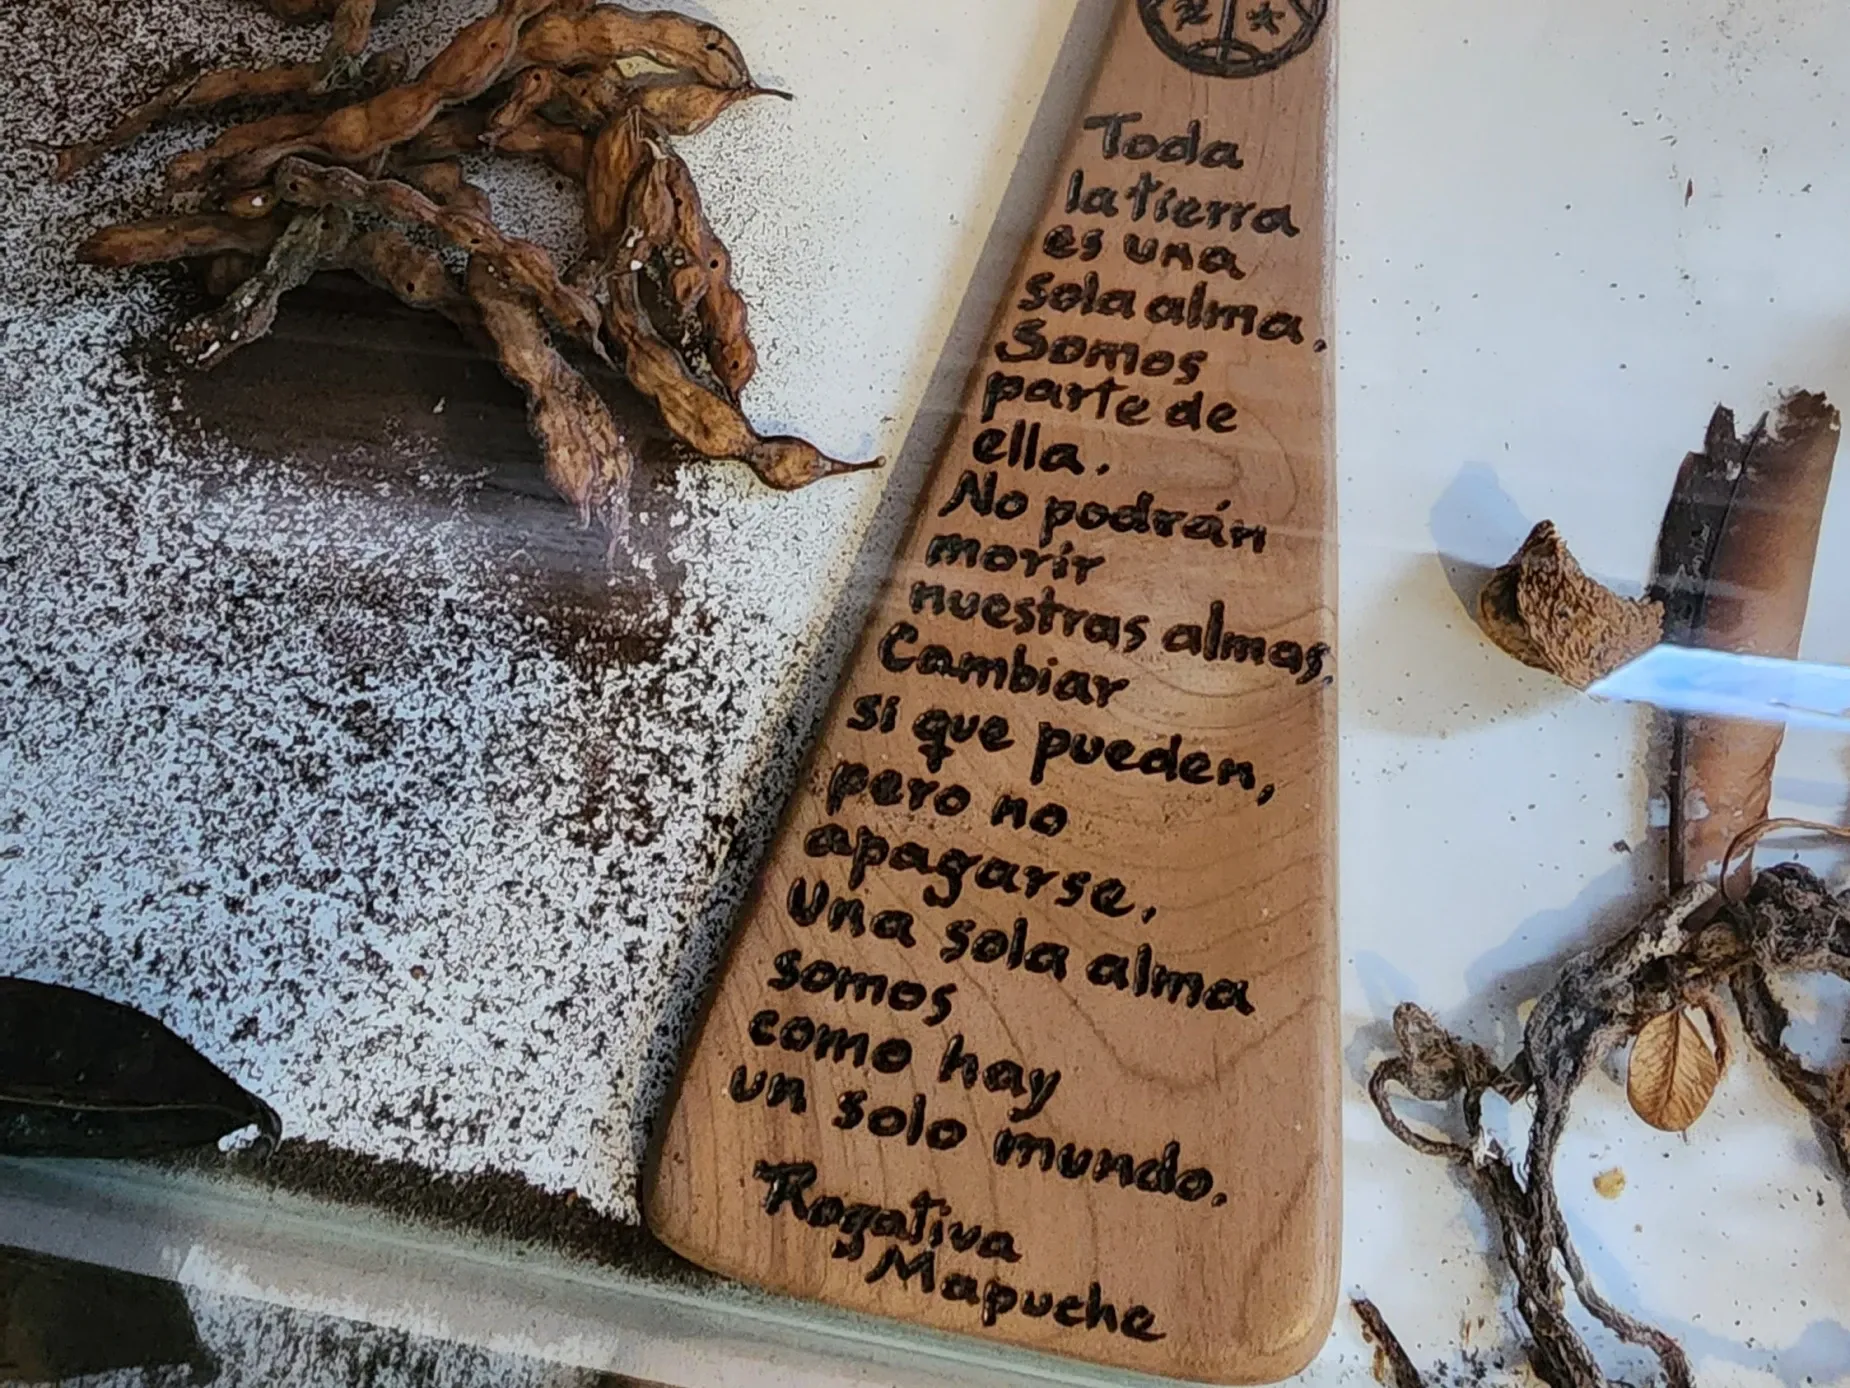 Toda
la tierra
es una
sola alma,
Somos
parte de
ella.
No podrán
morir
nuestras almas.
Cambiar
si que pueden,
pero no
apagarse.
Una sola alma
somos
como hay
un solo mundo.
Rogativa
Mapuche